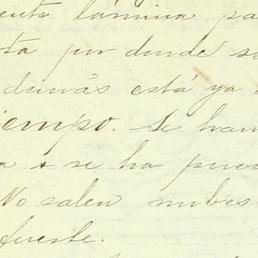 lámina pa
ta por donde s
demás está ya
iempo. Se han
a & se ha pues
No salen nubes
fuerte.